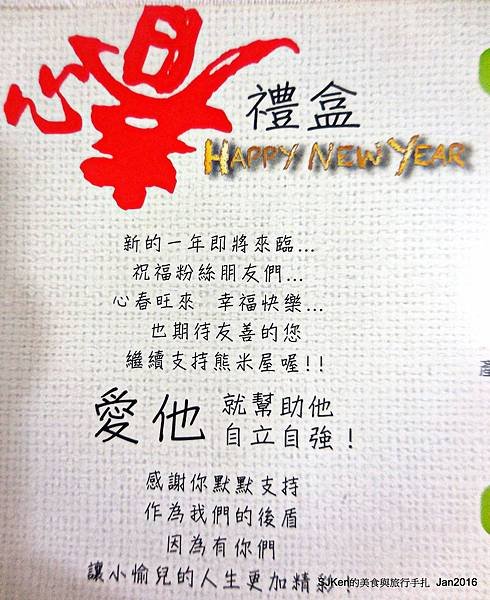 禮盒
HAPPY NEW YEAR
新的一年即將來臨...
祝福粉絲朋友們...
心春旺來 幸福快樂...
也期待友善的您
繼續支持熊米屋喔!!
愛他 就幫助他
自立自強!
感謝你默默支持
作為我們的後盾
因為有你們
讓小愉兒的人生更加精彩!
SJKen的美食與旅行手扎 Jan2016
產